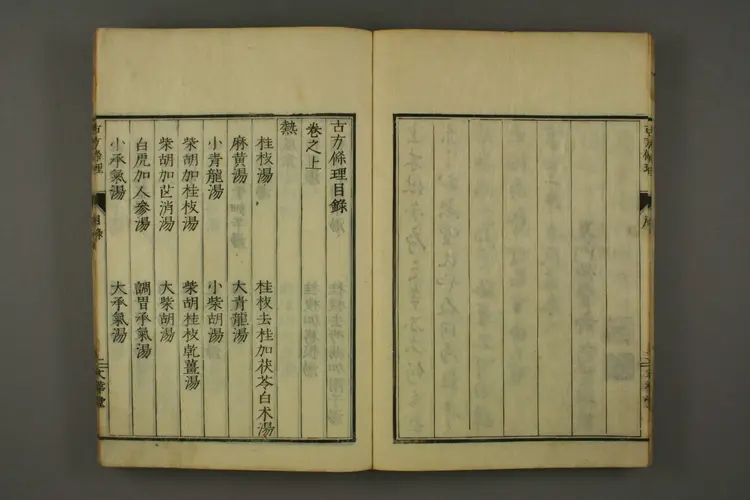 古方條理
序
古方條理目錄
卷之上
熱
桂枝湯
桂枝去桂加茯苓白术湯
麻黃湯
大青龍湯
小青龍湯
小柴胡湯
柴胡加桂枝湯
柴胡桂枝乾薑湯
柴胡加芒消湯
大柴胡湯
白虎加人參湯
調胃承氣湯
小承氣湯
大承氣湯
古方條理
目錄